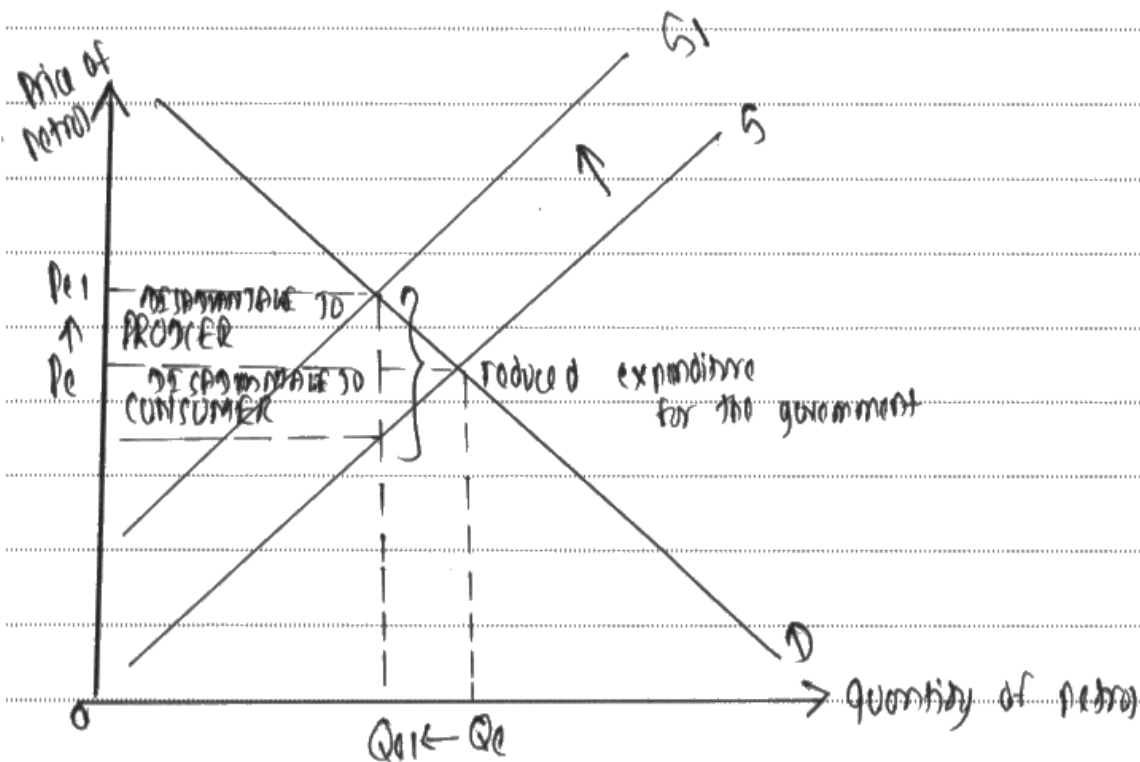 Price of
petrol
S1
S
Pe1
DISADVANTAGE TO
PRODCER
Pe
DISADVANTAGE TO
CONSUMER
reduced expenditure
for the government
D
0
quantity of petrol
Qe1 ← Qe